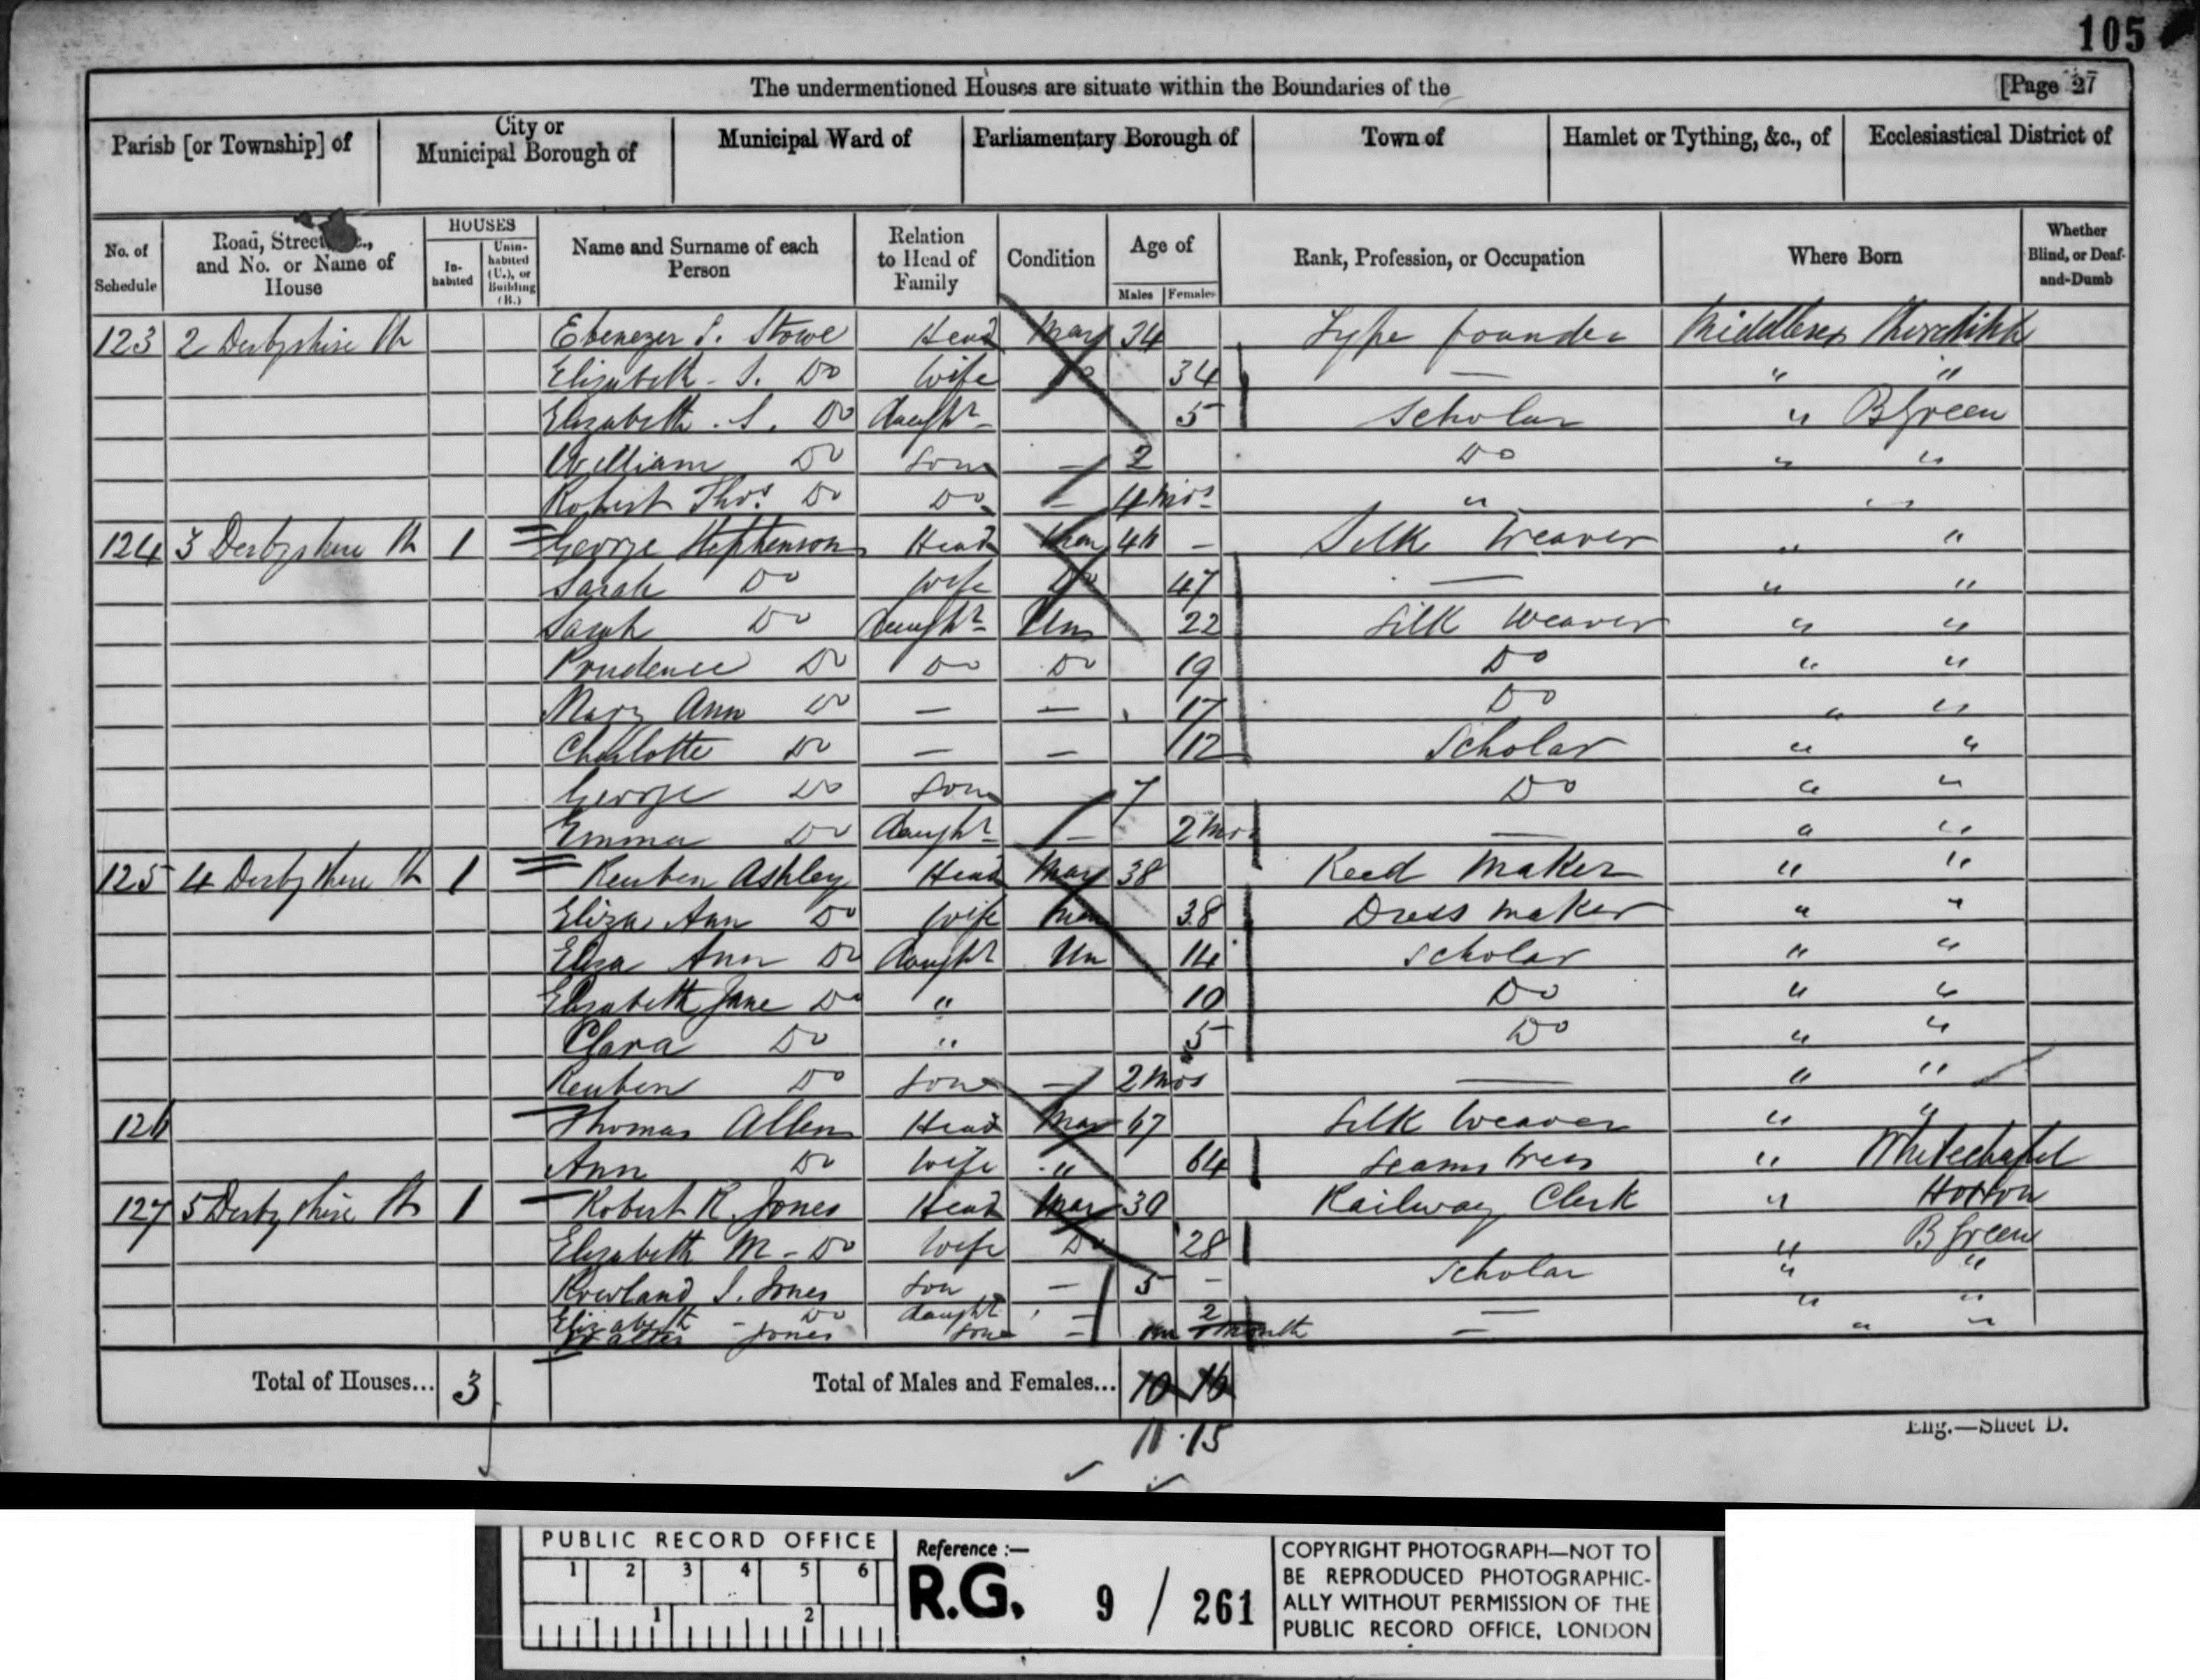 105
The undermentioned Houses are situate within the Boundaries of the [Page 27
Parish [or Township] of
City or Municipal Borough of
Municipal Ward of
Parliamentary Borough of
Town of
Hamlet or Tything, &c., of
Ecclesiastical District of
No. of Schedule
Road, Street, &c., and No. or Name of House
HOUSES
In-habited
Unin-habited (U.), or Building (B.)
Name and Surname of each Person
Relation to Head of Family
Condition
Age of
Males Females
Rank, Profession, or Occupation
Where Born
Whether Blind, or Deaf-and-Dumb
123 2 Derbyshire St Ebenezer S. Stowe Head Mar 34 Type founder Middlesex Shoreditch
Elizabeth S. Do Wife Do 34 — " "
Elizabeth . S. Do Daughr 5 Scholar " B Green
William Do Son — 2 Do " "
Robert Thos. Do Do — 4 Mos " " "
124 3 Derbyshire St 1 George Stephenson Head Mar 46 — Silk Weaver " "
Sarah Do Wife Do 47 — " "
Sarah Do Daughr Un 22 Silk Weaver " "
Prudence Do Do Do 19 Do " "
Mary Ann Do — — 17 Do " "
Charlotte Do — — 12 Scholar " "
George Do Son 7 Do " "
Emma Do Daughr — 2 Mos — " "
125 4 Derbyshire St 1 Reuben Ashley Head Mar 38 Reed Maker " "
Eliza Ann Do Wife Mar 38 Dress maker " "
Eliza Ann Do Daughr Un 14 Scholar " "
Elizabeth Jane Do " 10 Do " "
Clara Do " 5 Do " "
Reuben Do Son — 2 Mos — " "
126 Thomas Allen Head Mar 67 Silk Weaver " "
Ann Do Wife " 64 Seamstress " Whitechapel
127 5 Derbyshire St 1 Robert R. Jones Head Mar 30 Railway Clerk " Hoxton
Elizabeth M - Do Wife Do 28 " B Green
Rowland S. Jones Son — 5 — Scholar " "
Elizabeth - Do Daught — 2 — " "
Walter Jones Son — month — " "
Total of Houses... 3
Total of Males and Females... 10 16
11 15
Eng.—Sheet D.
PUBLIC RECORD OFFICE
1 2 3 4 5 6
1 2
Reference :—
R.G. 9 / 261
COPYRIGHT PHOTOGRAPH—NOT TO
BE REPRODUCED PHOTOGRAPHIC-
ALLY WITHOUT PERMISSION OF THE
PUBLIC RECORD OFFICE, LONDON